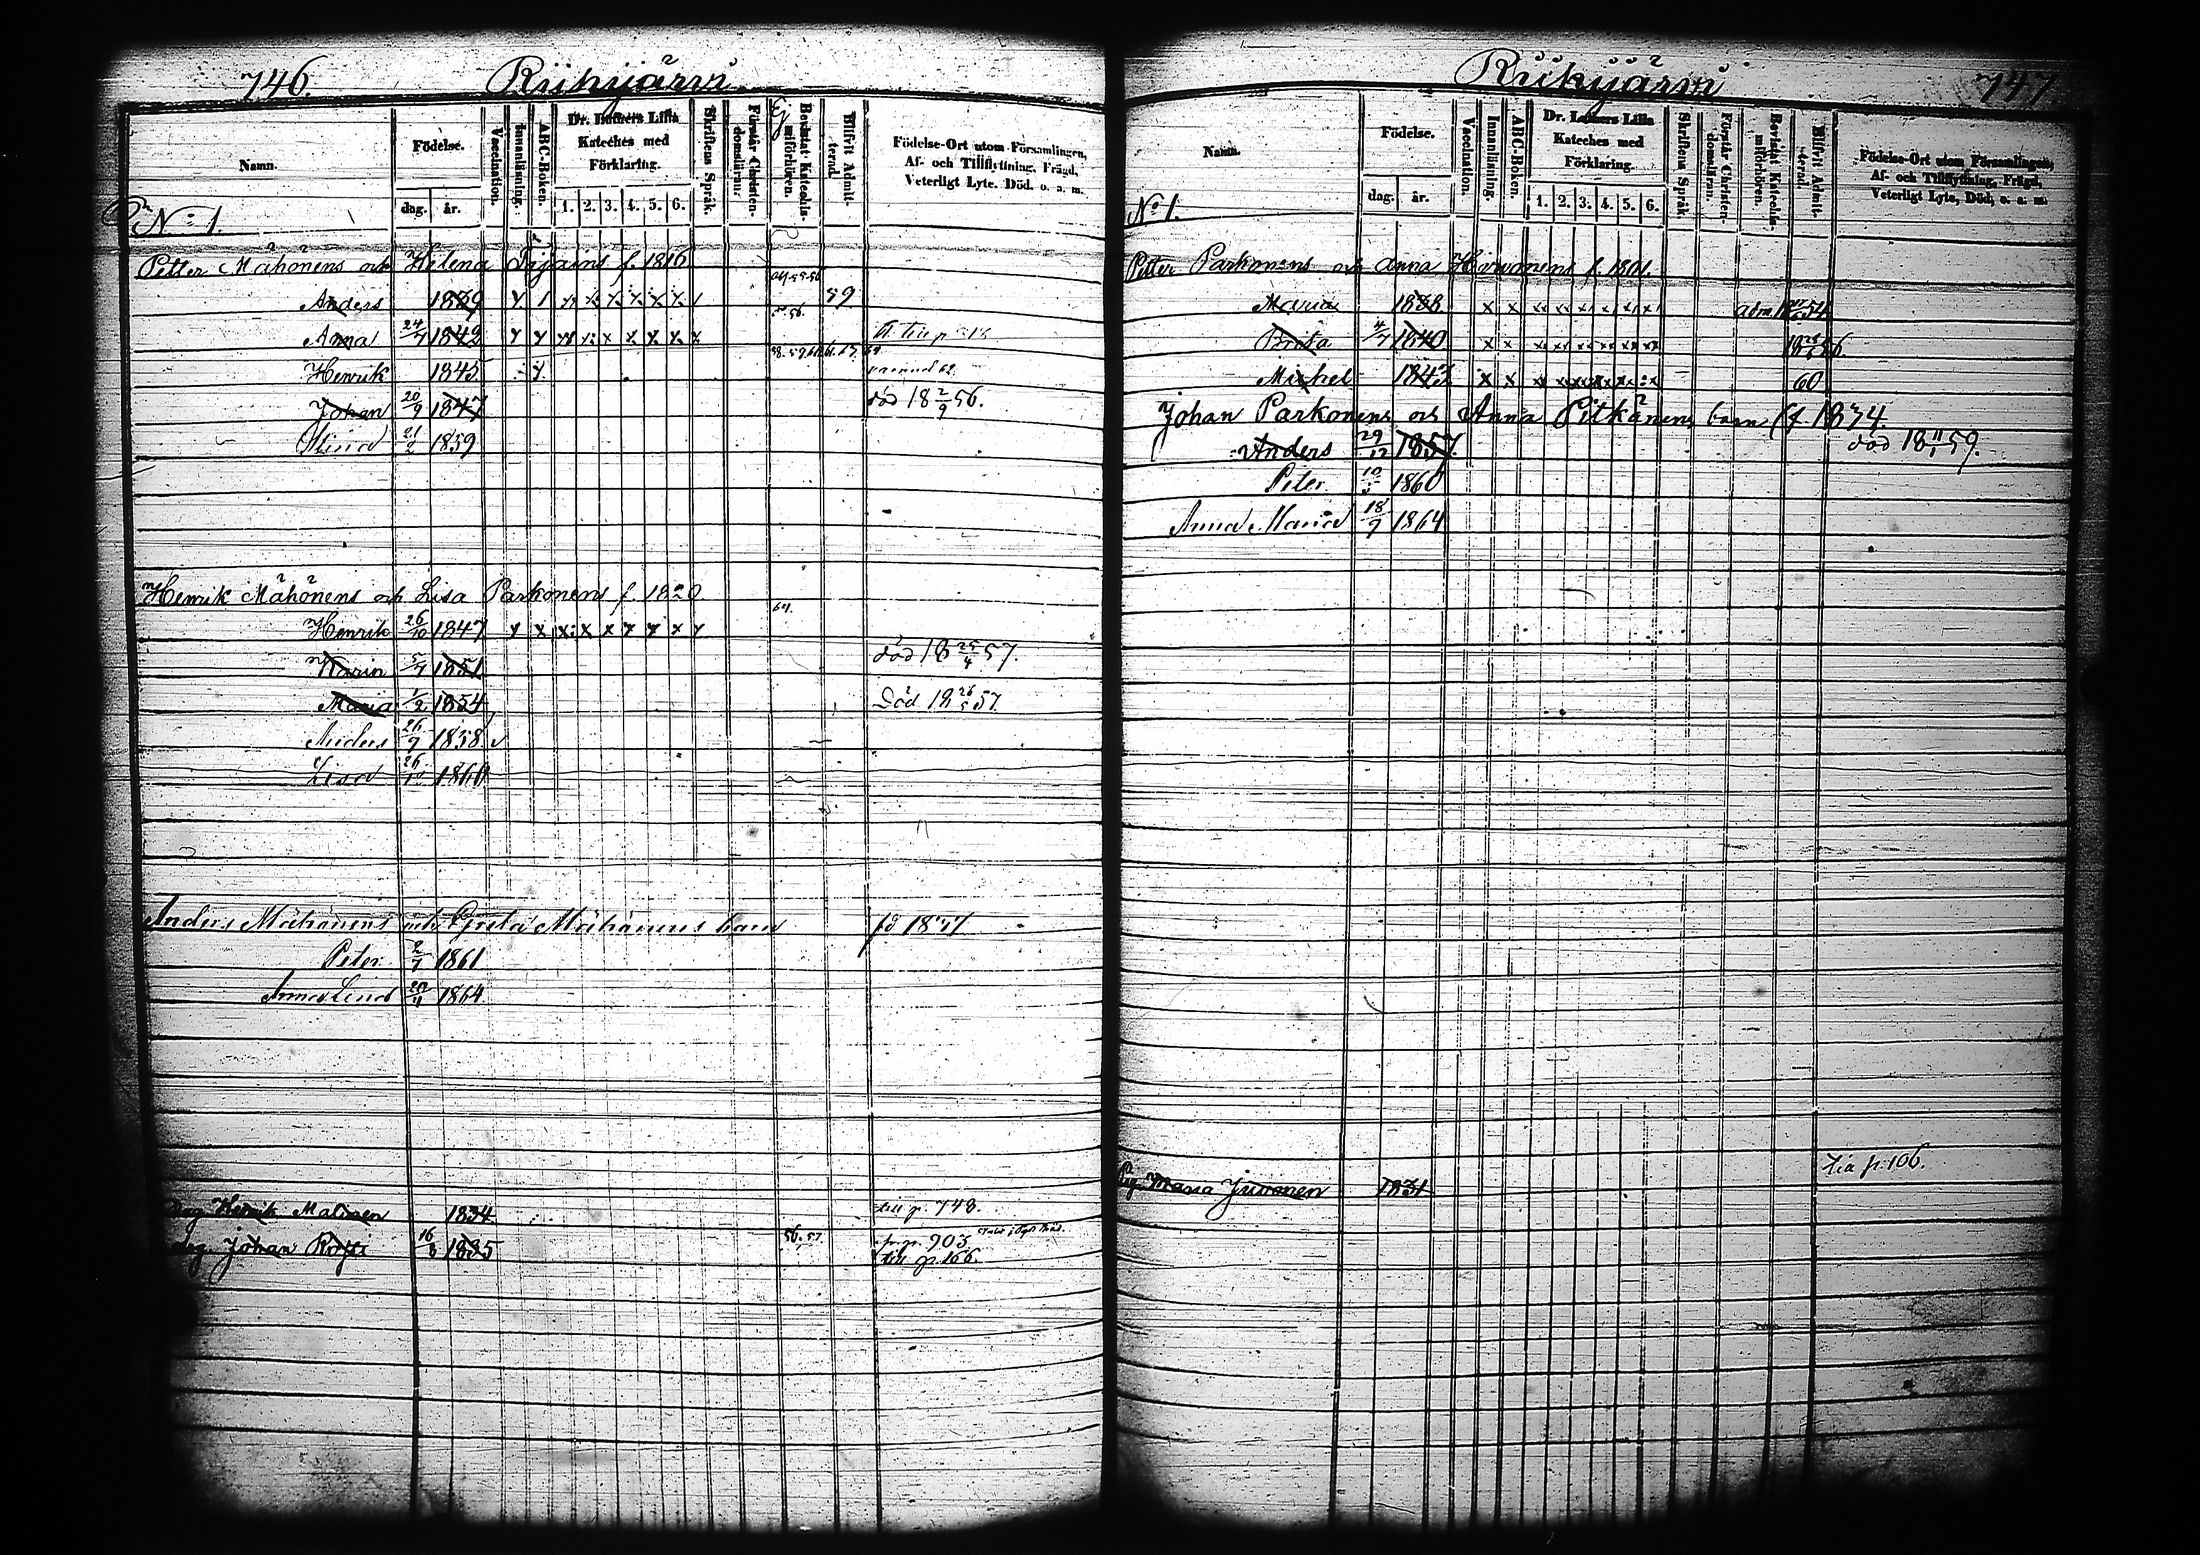 746. Riihijärvi
Namn.
Födelse.
dag. år.
Vaccination.
Innanläsning.
ABC-Boken.
Dr. Luthers Lilla Kateches med Förklaring.
1. 2. 3. 4. 5. 6.
Skriftens Språk.
Förstår Christendomsläran:
Bevistat Katechismiförhören.
Blifvit Admitterad.
Födelse-Ort utom Församlingen, Af- och Tillflyttning, Frägd, Veterligt Lyte. Död. o. a. m.
No 1.
Petter Mähönens och Helena f. 1816
Anders 1839 59
Anna 24/7 1842
Henrik 1845
Johan 20/9 1847 död 18 2/9 56.
Stina 21/2 1859
Henrik Mähönens och Lisa Parkonens f. 1820
Henrik 26/10 1847 64.
Karin 5/7 1851 död 18 25/4 57.
Maria 1/2 1854 Död 18 26/5 57.
Anders 26/9 1858
Lisa 1860
Anders Mähönens och Greta Mähönens barn
Peter 2/7 1861
Anna Lena 1864
Drg. Henrik Malinen 1834 till p. 748.
drg. Johan 16/3 1835 56. 57. p. 903
till p. 166.
Riihijärvi 747.
Namn.
Födelse.
dag. år.
Vaccination.
Innanläsning.
ABC-Boken.
Dr. Luthers Lilla Kateches med Förklaring.
1. 2. 3. 4. 5. 6.
Skriftens Språk.
Förstår Christendomsläran:
Bevistat Katechismiförhören.
Blifvit Admitterad.
Födelse-Ort utom Församlingen, Af- och Tillflyttning, Frägd, Veterligt Lyte, Död, o. a. m.
No 1.
Petter Parkonens och Anna Hirvonens f. 1801.
Maria 1838
Brita 4/7 1840
Michel 1843 60
Johan Parkonens och Anna Pitkänens barn (f 1834.
Anders 29/12 1857. död 18 59.
Peter 10/5 1860
Anna Maria 18/7 1864
Pig. Maria Juvonen 1831 p. 106.